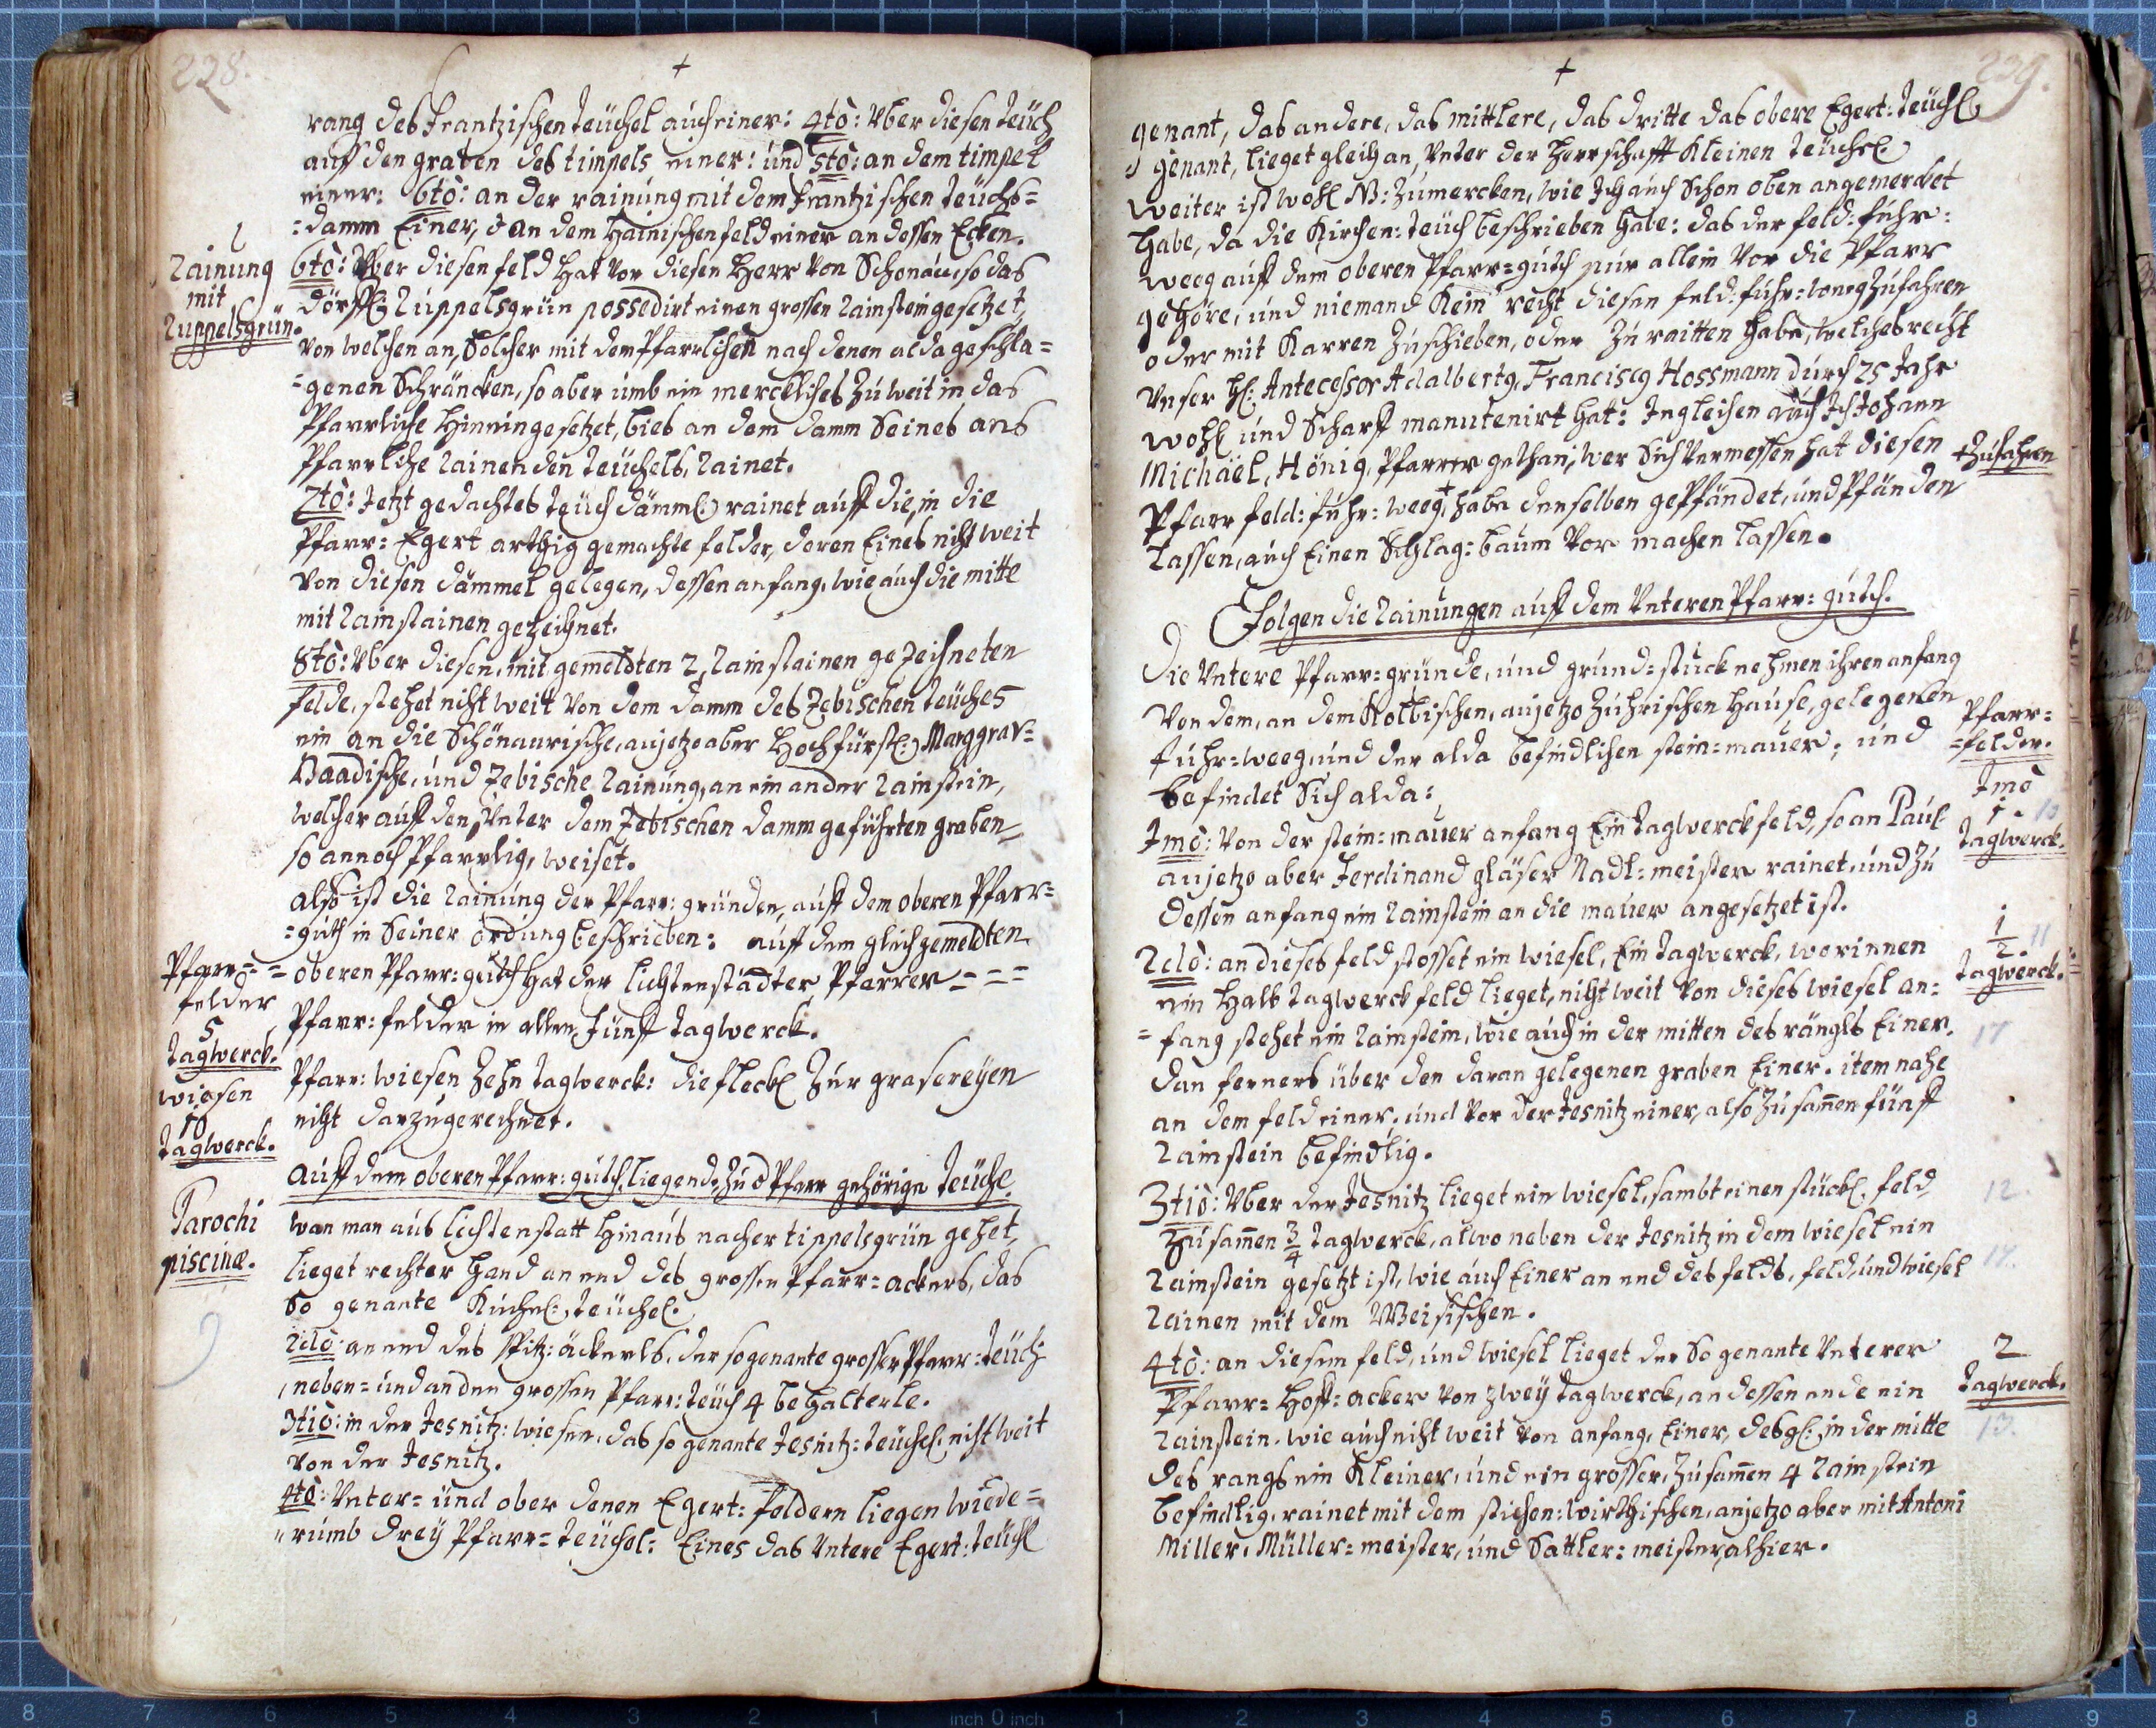 228.
+
rang des Frantzischen teüchel auch einer: 4tò: Über diesen teüch
auff den graten des timpels einer: und 5tò: an dem timpel
einer: 6tò: an der rainung mit dem Frantzischen teüchs=
=damm Einer, & an dem Hainischen feld einer an dessen Ecken.
Rainung
mit
Ruppelsgrün.
6tò: Über diesen feld hat vor diesen Herr von Schonau, so das
dörffl: Ruppelsgrün possedirt einen grossen Rainstein gesetzet,
von welchen an, solcher mit dem Pfarrlichen nach denen alda geschla=
=genen Schräncken, so aber umb ein merckliches zu weit in das
Pfarrliche hinein gesetzet, bies an dem damm seines ans
Pfarrliche Rainenden teüchels, Rainet.
7tò: Jetzt gedachtes teüch dämml: rainet auff die, in die
Pfarr= Egert arthig gemachte felder, deren Eines nicht weit
von diesen dämmel gelegen, dessen anfang, wie auch die mitte
mit Rainstainen gezeichnet.
8tò: Über diesen, mit gemeldten 2, Rainstainen gezeichneten
felde, stehet nicht weit von dem damm des Zebischen teüches
ein an die Schönauische, anjetzo aber Hochfürstl: Marggrav=
Baadische, und Zebische Rainung, an ein ander Rainstein,
welcher auff den, Unter dem Zebischen damm geführten graben
so annoch Pfarrlig, weiset.
also ist die Rainung der Pfarr: gründen, auff dem oberen Pfarr=
=guth in seiner ordung beschrieben: auff dem gleich gemeldten
Pfarr= =
felder
5
tagwerck.
oberen Pfarr: guth hat der lichtenstädter Pfarrer= = =
Pfarr: felder in allen fünff tagwerck.
wiesen
10
tagwerck.
Pfarr: wiesen zehn tagwerck: die fleckl zur grasereÿen
nicht darzu gerechnet.
Auff dem oberen Pfarr: guth, liegende, zu d Pfarr gehörige teüche.
Parochi
piscinæ.
wan man aus lichtenstatt hinaus nacher tippelsgrün gehet,
lieget rechter hand an end des grossen Pfarr= ackers, das
so genante Kuchel: teüchel.
9
2dò: an end des Spitz: äckerls, der sogenante grosse Pfarr: teüch
neben= und an den grossen Pfarr: teüch 4 behalterle.
3tiò: in der Jesnitz: wiesen, das so genante Jesnitz: teüchel: nicht weit
von der Jesnitz.
4tò: Unter= und ober denen Egert: feldern liegen wiede=
=rumb dreÿ Pfarr= teüchel: Eines das Untere Egert: teüchl
229.
+
genant, das andere, das mittlere, das dritte das obere Egert: teüchl
genant, lieget gleich an, Unter der Herrschafft Kleinen teüchel.
weiter ist wohl NB: zumercken, wie Ich auch schon oben angemercket
habe, da die Kirchen: teüch beschrieben habe: das der feld: fuhr:
weeg auff dem oberen Pfarr= guth nur allein vor die Pfarr
gehöre, und niemand Kein recht diesen feld: fuhr: weeg zufahren
oder mit Karren zuschieben, oder zu raitten habe, welches recht
Unser H: Antecessor Adalbertg, Franciscg Hossmann durch 25 Jahr
wohl und scharff manutenirt hat: Ingleichen auch Ich Johann
Michaël, Hönig, Pfarrer gethan; wer sich vermessen hat diesen
+ zufahren
Pfarr feld: fuhr: weeg + habe denselben gepfändet, und pfänden
lassen, auch Einen Schlag: baum vor machen lassen.
Folgen die Rainungen auff dem Unteren Pfarr: guth.
Die Untere Pfarr= gründe, und grund: stuck nehmen ihren anfang
von dem, an dem Kolbischen, anjetzo Zuhrischen Hause, gelegenen
Pfarr=
=felder.
fuhr= weeg, und der alda befindlichen stein= mauer, und
befindet sich alda:
1mò
1. 10
tagwerck.
1mò: von der stein: mauer anfang Ein tagwerck feld, so an Paul
anjetzo aber Ferdinand gläser Nadl: meister rainet, und zu
dessen anfang ein Rainstein an die mauer angesetzet ist.
1/2. 11
tagwerck.
2dò: an dieses feld stosset ein wiesel, Ein tagwerck, worinnen
ein halb tagwerck feld lieget, nicht weit von dieses wiesel an=
=fang stehet ein Rainstein, wie auch in der mitten des rängls Einer.
17
dan ferners über den daran gelegenen graben Einer. item nahe
an dem feld einer, und vor der Jesnitz einer, also zusamen fünff
Rainstein befindlig.
3tiò: Über der Jesnitz lieget ein wiesel, sambt einen stückl. feld,
12.
zusamen 3/4 tagwerck, alwo neben der Jesnitz in dem wiesel ein
Rainstein gesetzt ist, wie auch Einer an end des felds, feld, und wiesel
17.
Rainen mit dem Weisischen.
4tò: an diesem feld, und wiesel lieget der so genante Unterer
2
tagwerck.
13.
Pfarr= Hoff: acker von zweÿ tagwerck, an dessen ende ein
Rainstein, wie auch nicht weit von anfang, Einer, desgl: in der mitte
des rangs ein Kleiner, und ein grosser, zusamen 4 Rainstein
befindlig, rainet mit dem stichen: wirthischen, anjetzo aber mit Antoni
Miller, Müller= meister, und Sattler: meister, alhier.